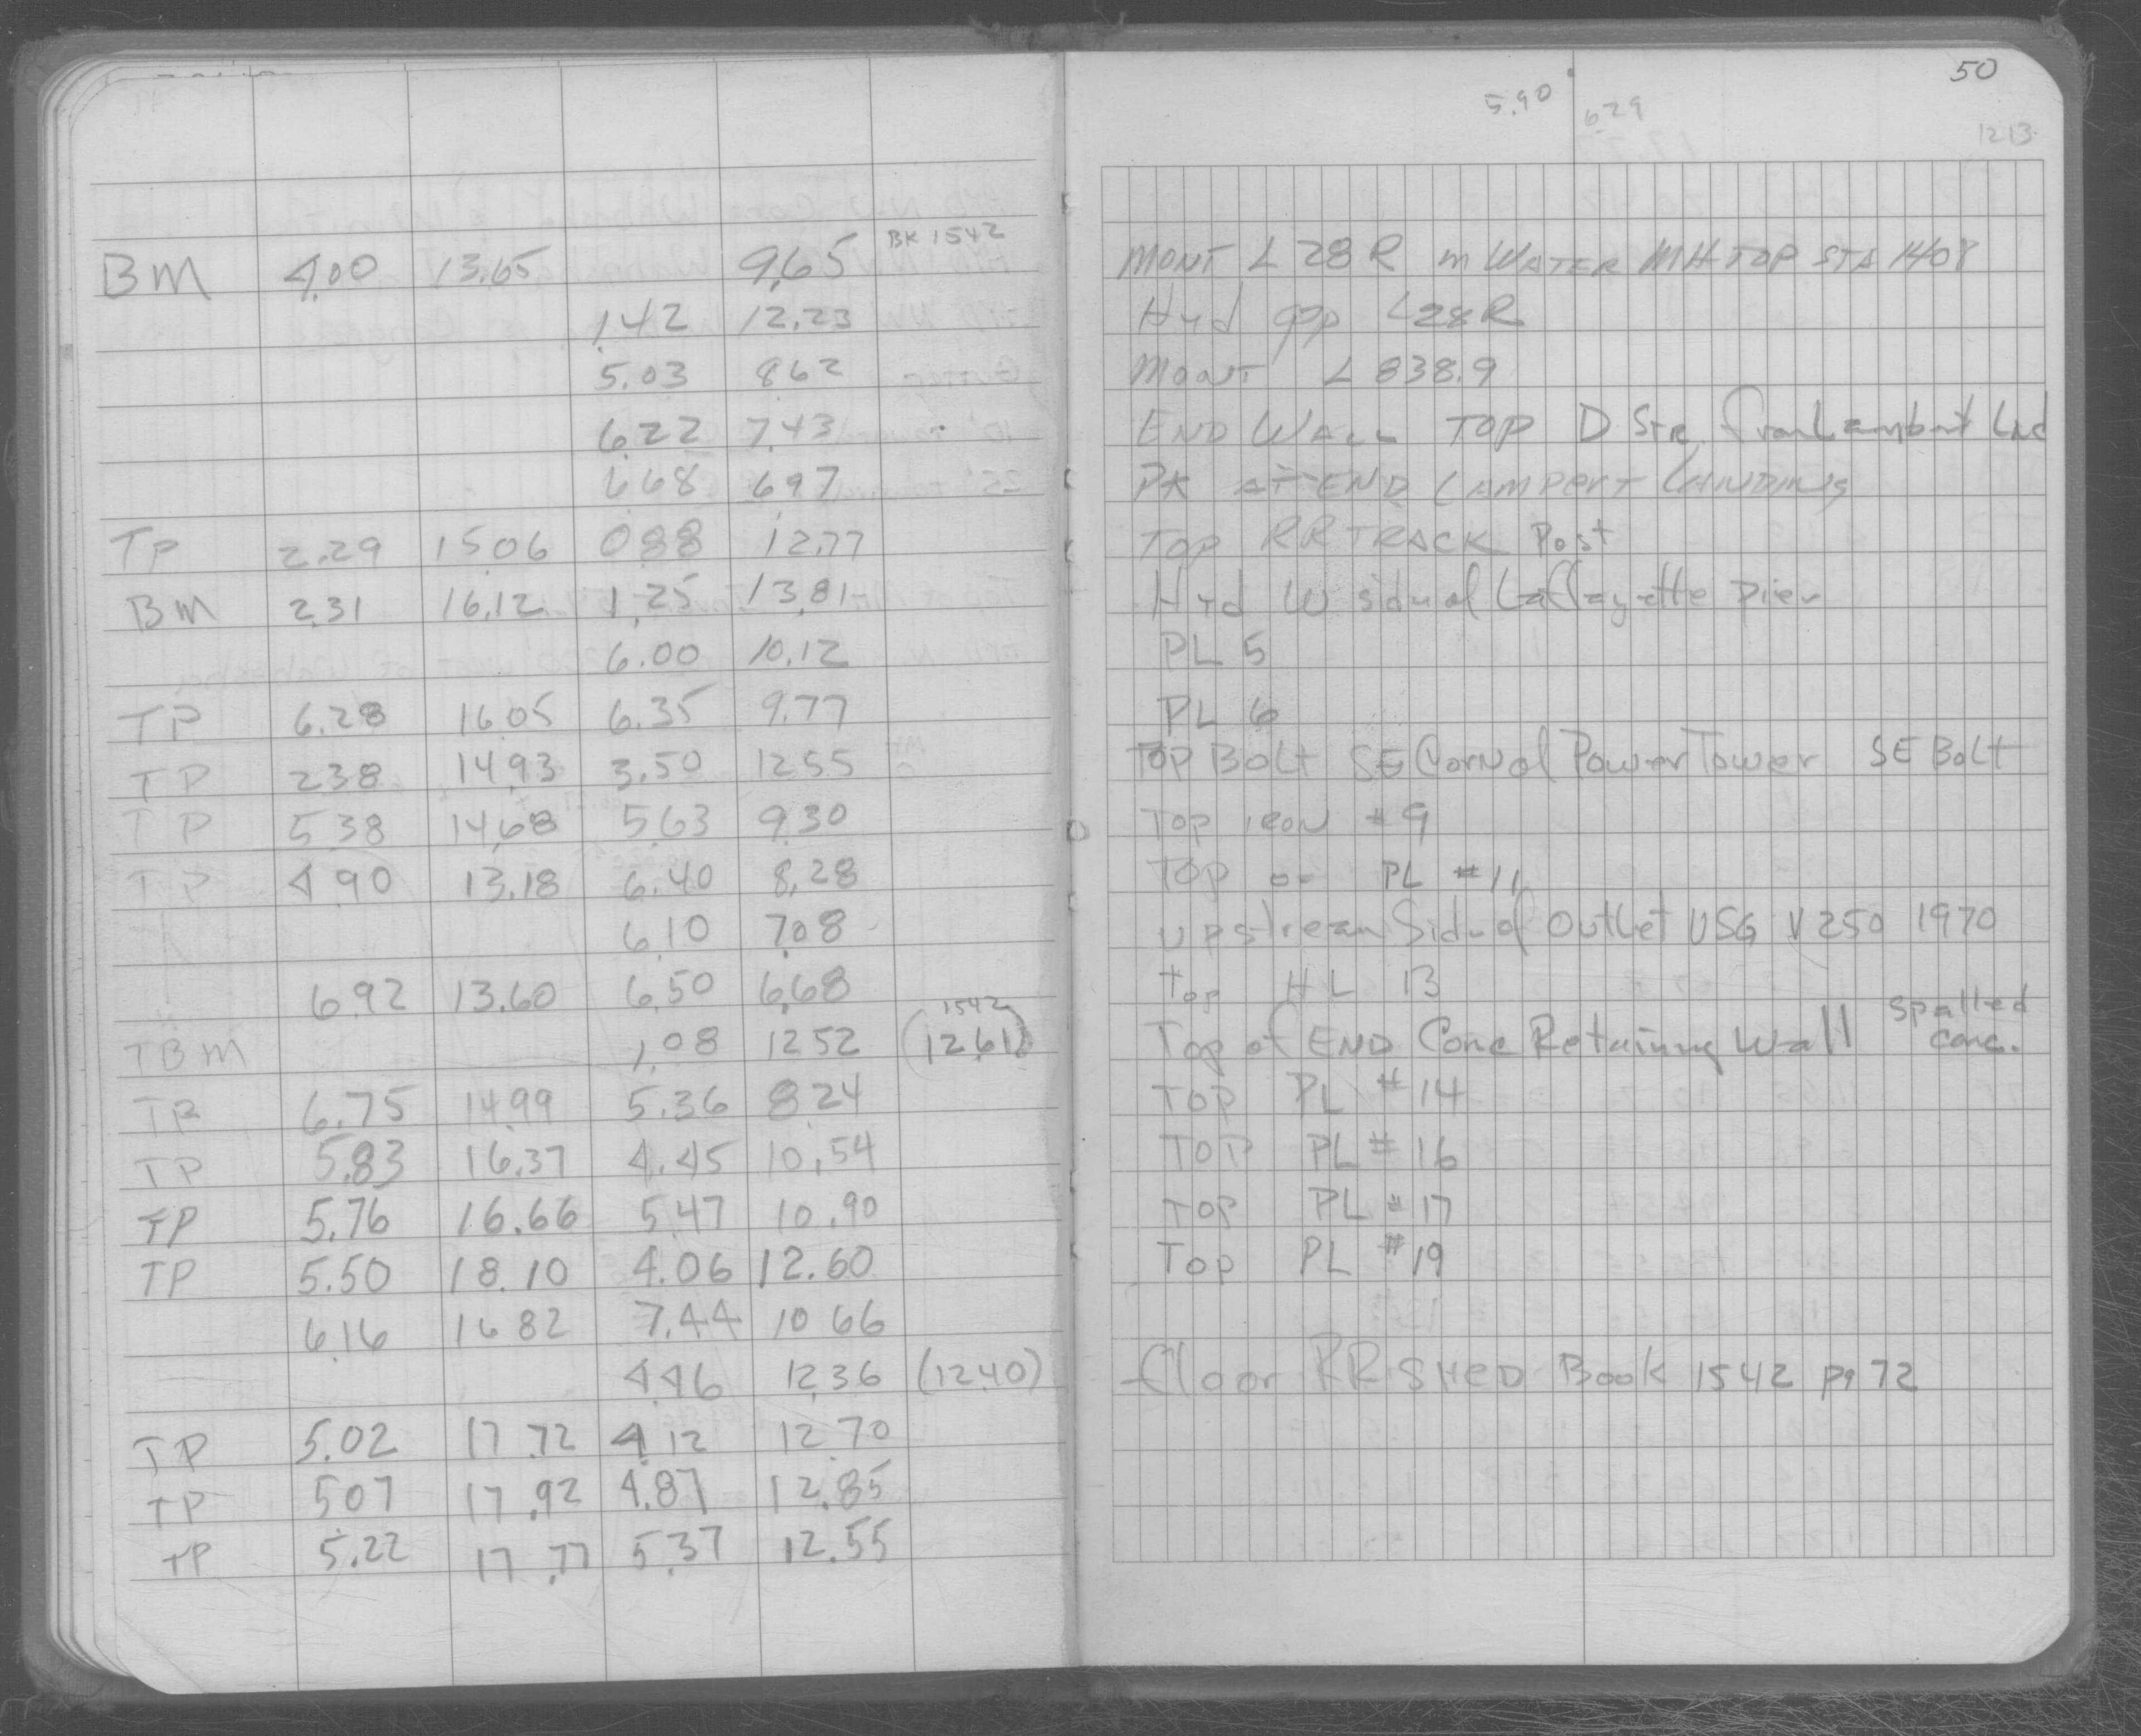 50
5.90 6.29
12.13
BM 4.00 13.65 9.65 BK 1542 MONT L 28 R in WATER MH TOP STA 1408
1.42 12.23 Hyd opp L28R
5.03 8.62 MONT L 838.9
6.22 7.43 END WALL TOP D Str from Lambert Lnd
6.68 6.97 PK AT END LAMPERT LANDING
TP 2.29 15.06 0.88 12.77 Top RR TRACK Post
BM 2.31 16.12 1.25 13.81 Hyd W side of Laffayette Pier
6.00 10.12 PL 5
TP 6.28 16.05 6.35 9.77 PL 6
TP 2.38 14.93 3.50 12.55 TOP Bolt SE Corn of Power Tower SE Bolt
TP 5.38 14.68 5.63 9.30 TOP IRON #9
TP 4.90 13.18 6.40 8.28 TOP on PL #11
6.10 7.08 Upstream Side of Outlet USG V 250 1970
6.92 13.60 6.50 6.68 top HL 13
TBM 1.08 12.52 1542 (12.61) Top of END Conc Retaining Wall spalled conc.
TP 6.75 14.99 5.36 8.24 TOP PL #14
TP 5.83 16.37 4.45 10.54 TOP PL #16
TP 5.76 16.66 5.47 10.90 TOP PL #17
TP 5.50 18.10 4.06 12.60 Top PL #19
6.16 16.82 7.44 10.66
4.46 12.36 (12.40) floor RR SHED Book 1542 pg 72
TP 5.02 17.72 4.12 12.70
TP 5.07 17.92 4.87 12.85
TP 5.22 17.77 5.37 12.55